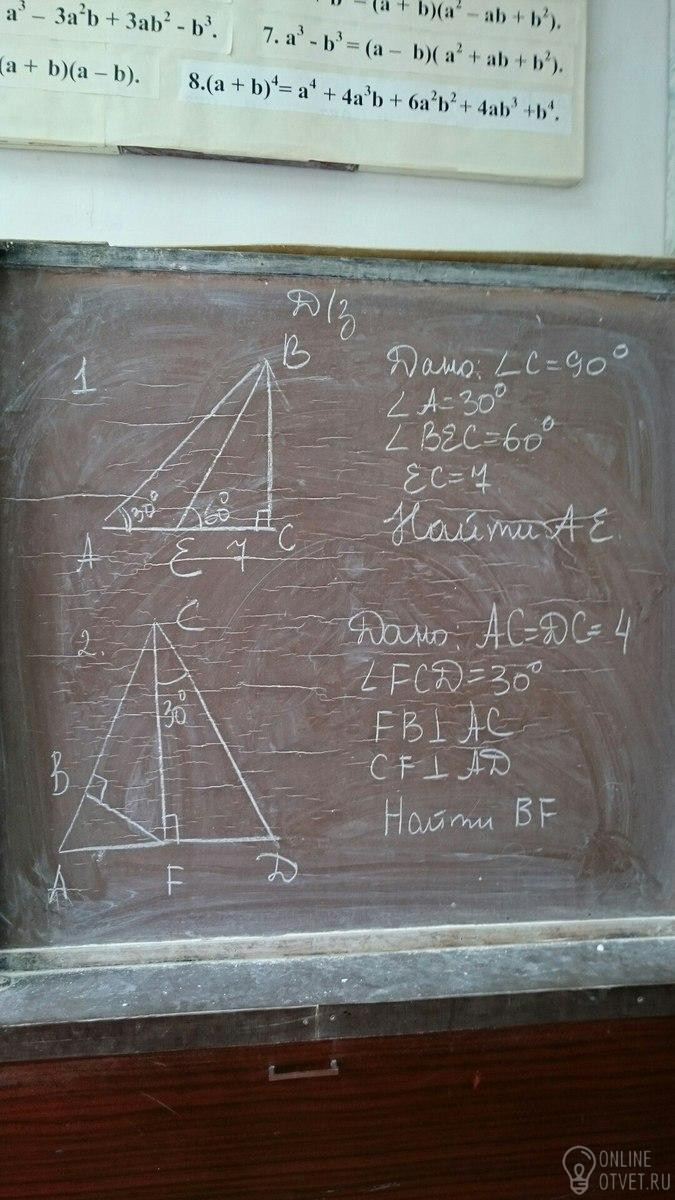 a³ – 3a²b + 3ab² - b³.
(a + b)(a² – ab + b²).
7. a³ - b³ = (a – b)( a² + ab + b²).
(a + b)(a – b).
8.(a + b)⁴= a⁴ + 4a³b + 6a²b² + 4ab³ +b⁴.
Д/з
1
B
30°
60°
A
E
7
C
Дано: ∠C=90°
∠A=30°
∠BEC=60°
EC=7
Найти AE.
2.
C
30°
B
A
F
D
Дано: AC=DC=4
∠FCD=30°
FB⊥AC
CF⊥AD
Найти BF
ONLINE
OTVET.RU